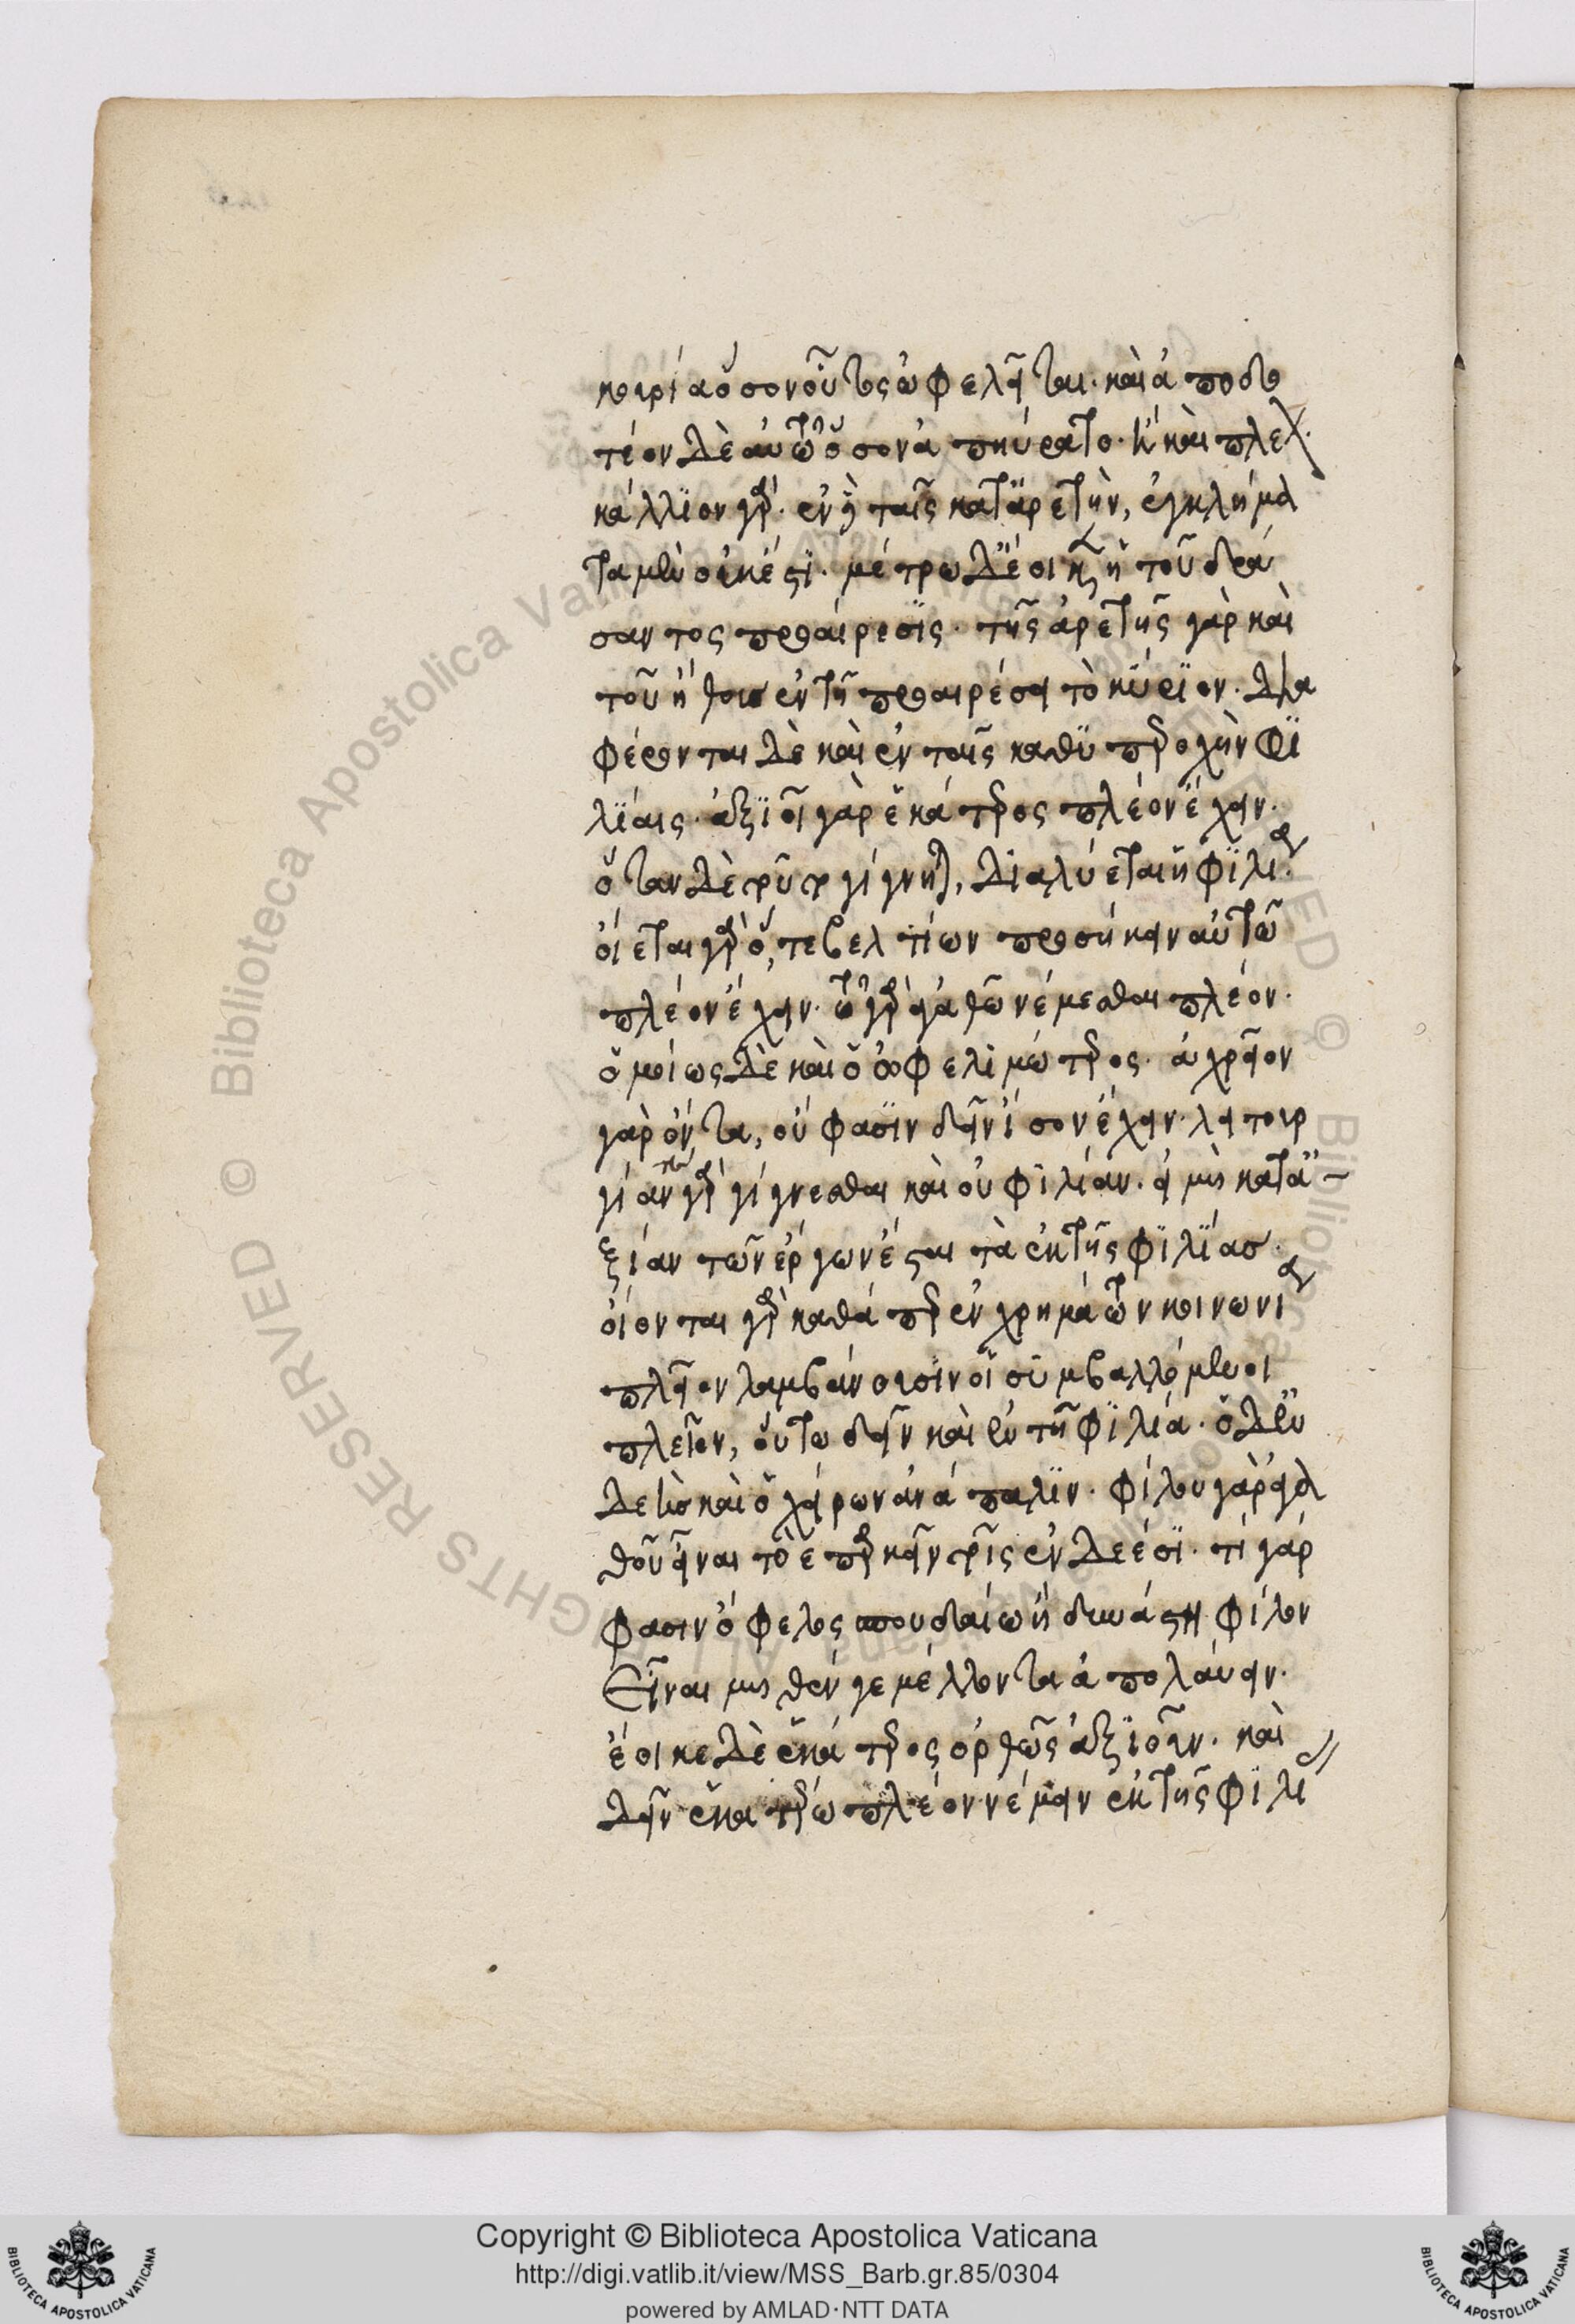 κουρία ὅσον οὗτος ὠφελεῖται. καὶ ἀποδο
τέον δὲ αὐτῷ ὅσον ἀπηύρατο. ἢ καὶ πλεῖ.
κάλλιον γάρ. ἐν δὲ ταῖς κατ' ἀρετὴν, ἐγκλήμα
τα μὲν οὐκ ἔστι. μέτρω δ' ἔοικεν ἡ τοῦ δρά
σαντος προαίρεσις. τῆς ἀρετῆς γὰρ καὶ
τοῦ ἤθους ἐν τῇ προαιρέσει τὸ κύριον. δια
φέρονται δὲ καὶ ἐν ταῖς καθ' ὑπεροχὴν φι
λίαις. ἀξιοῖ γὰρ ἑκάτερος πλέον ἔχειν.
ὅταν δὲ τοῦτο γίγνηται, διαλύεται ἡ φιλία.
οἴεται γὰρ ὅ,τε βελτίων προσήκειν αὐτῶ
πλέον ἔχειν. τῷ γὰρ ἀγαθῶ νέμεσθαι πλέον.
ὁμοίως δὲ καὶ ὁ ὠφελιμώτερος. ἀχρεῖον
γὰρ ὄντα, οὔ φασιν δεῖν ἴσον ἔχειν. λειτουρ
γίαν τε γὰρ γίγνεσθαι καὶ οὐ φιλίαν. εἰ μὴ κατ' ἀ-
ξίαν τῶν ἔργων ἔσται τὰ ἐκ τῆς φιλίας.
οἴονται γὰρ καθάπερ ἐν χρημάτων κοινωνία
πλεῖον λαμβάνουσιν οἱ συμβαλλόμενοι
πλεῖον, οὕτω δεῖν καὶ ἐν τῇ φιλία. ὁ δ' ἐν
δεὴς καὶ ὁ χείρων ἀνάπαλιν. φίλου γὰρ ἀγα
θοῦ εἶναι τὸ ἐπαρκεῖν τοῖς ἐνδεέσι. τί γάρ
φασιν ὄφελος σπουδαίω ἢ δυνάστη φίλον
εἶναι μηθέν γε μέλλοντα ἀπολαύειν.
ἔοικε δὲ ἑκάτερος ὀρθῶς ἀξιοῦν. καὶ
δεῖν ἑκατέρω πλέον νέμειν ἐκ τῆς φιλί
Copyright © Biblioteca Apostolica Vaticana
http://digi.vatlib.it/view/MSS_Barb.gr.85/0304
powered by AMLAD·NTT DATA